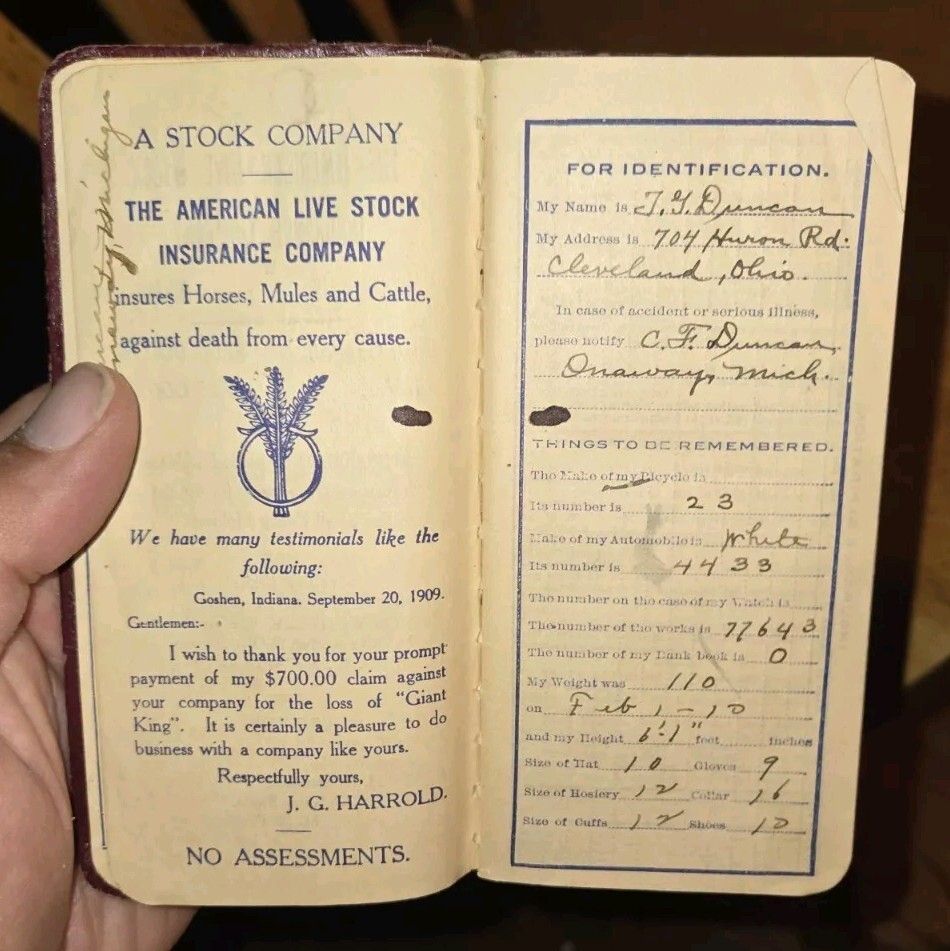 A STOCK COMPANY
THE AMERICAN LIVE STOCK
INSURANCE COMPANY
insures Horses, Mules and Cattle,
against death from every cause.
We have many testimonials like the
following:
Goshen, Indiana. September 20, 1909.
Gentlemen:-
I wish to thank you for your prompt
payment of my $700.00 claim against
your company for the loss of "Giant
King". It is certainly a pleasure to do
business with a company like yours.
Respectfully yours,
J. G. HARROLD.
NO ASSESSMENTS.
Michigan
FOR IDENTIFICATION.
My Name is T. G. Duncan
My Address is 704 Huron Rd.
Cleveland, Ohio.
In case of accident or serious illness,
please notify C. F. Duncan,
Onaway, Mich.
THINGS TO BE REMEMBERED.
The Make of my Bicycle is
Its number is 23
Make of my Automobile is White
Its number is 4433
The number on the case of my Watch is
The number of the works is 77643
The number of my Bank book is 0
My Weight was 110
on Feb 1-10
and my Height 6'-1" feet inches
Size of Hat 10 Gloves 9
Size of Hosiery 12 Collar 16
Size of Cuffs 12 Shoes 10